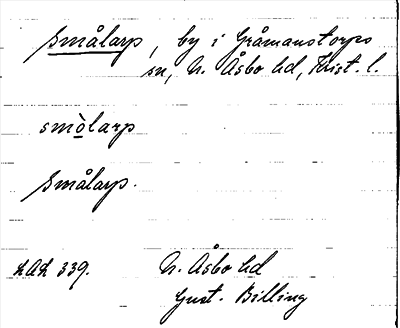 Smålarp, by i Gråmanstorps
sn, N. Åsbo hd, Krist. l.
smòlarp
Smålarp.
LAL 339.
N. Åsbo hd
Gust. Billing